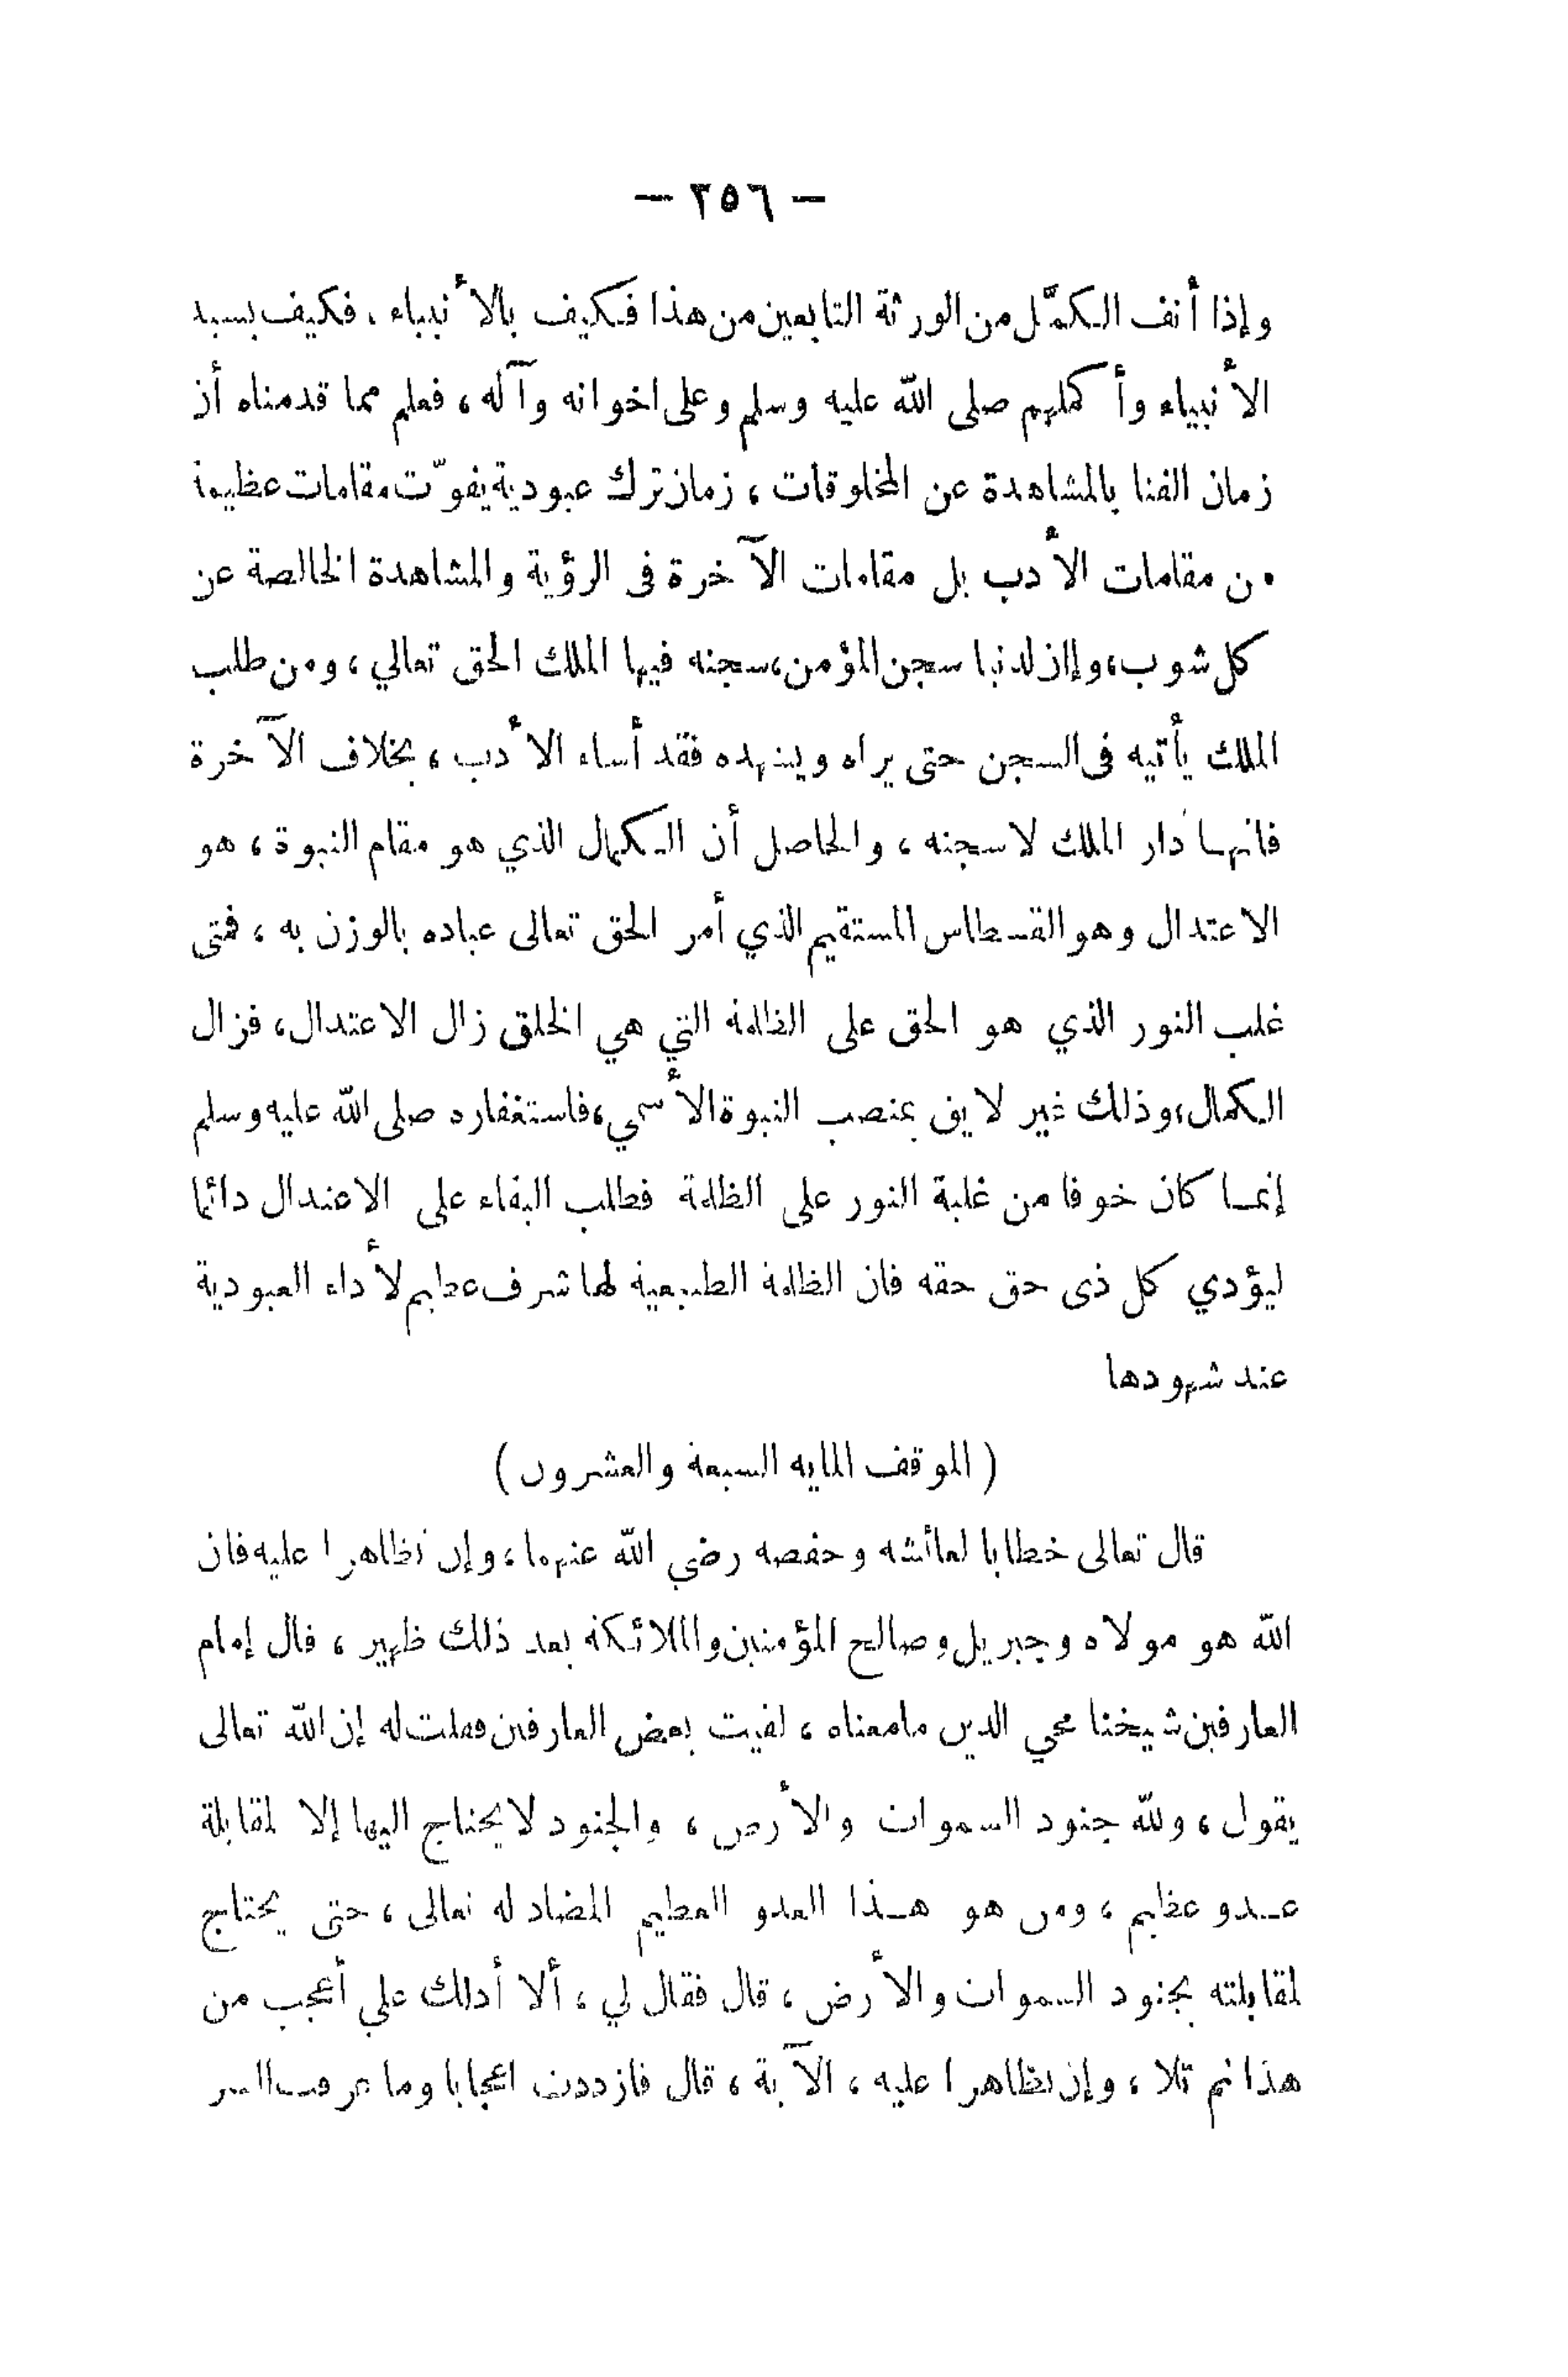 — ٢٥٦ —
وإذا أنف الكمَّل من الورثة التابعين من هذا فكيف بالأنبياء، فكيف بسيد
الأنبياء وأكملهم صلى الله عليه وسلم وعلى اخوانه وآله، فعلم مما قدمناه أن
زمان الفنا بالمشاهدة عن المخلوقات، زمان ترك عبودية يفوّت مقامات عظيمة
من مقامات الأدب بل مقامات الآخرة فى الرؤية والمشاهدة الخالصة عن
كل شوب، وإن لدنيا سجن المؤمن، سجنه فيها الملك الحق تعالي، ومن طلب
الملك يأتيه فى السجن حتى يراه ويشهده فقد أساء الأدب، بخلاف الآخرة
فانها دار الملك لا سجنه، والحاصل أن الكمال الذي هو مقام النبوة، هو
الاعتدال وهو القسطاس المستقيم الذي أمر الحق تعالى عباده بالوزن به، فمتى
غلب النور الذي هو الحق على الظلمة التي هي الخلق زال الاعتدال، فزال
الكمال، وذلك غير لايق بمنصب النبوة الأسمي، فاستغفاره صلى الله عليه وسلم
إنما كان خوفا من غلبة النور على الظلمة فطلب البقاء على الاعتدال دائما
ليؤدي كل ذى حق حقه فان الظلمة الطبيعية لها شرف عظيم لأداء العبودية
عند شهودها
( الموقف المايه السبعة والعشرون )
قال تعالى خطابا لعائشه وحفصه رضي الله عنهما، وإن تظاهرا عليه فان
الله هو مولاه وجبريل وصالح المؤمنين والملائكة بعد ذلك ظهير، قال إمام
العارفين شيخنا محي الدين مامعناه، لقيت بعض العارفين فقلت له إن الله تعالى
يقول، ولله جنود السموات والأرض، والجنود لا يحتاج اليها إلا لمقابلة
عدو عظيم، ومن هو هذا العدو العظيم المضاد له تعالى، حتى يحتاج
لمقابلته بجنود السموات والأرض، قال فقال لي، ألا أدلك علي أعجب من
هذا ثم تلا، وإن تظاهرا عليه، الآية، قال فازددت اعجابا وما عرفت السر